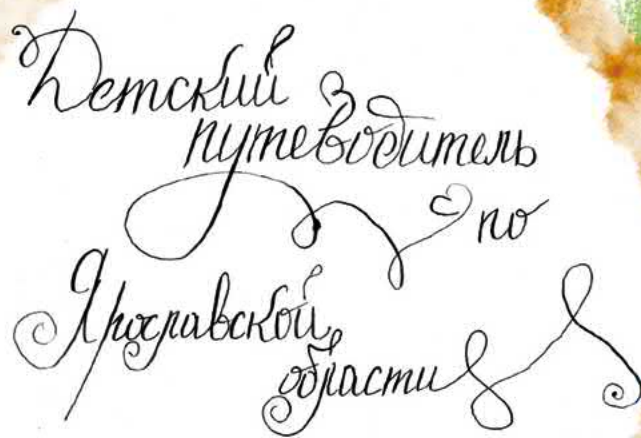 Детский
путеводитель
по
Ярославской
области